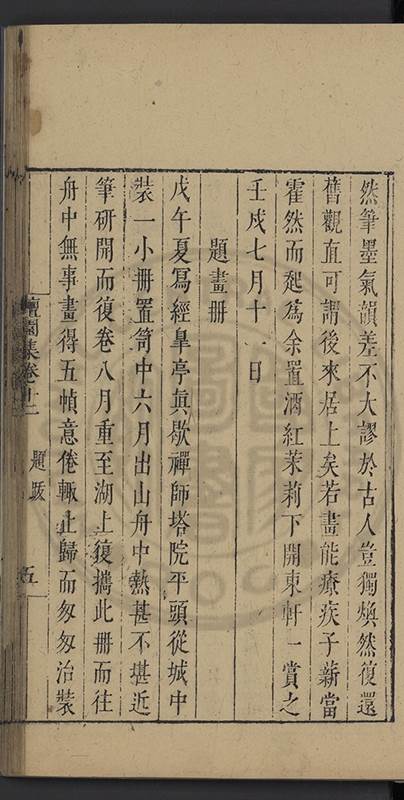 然筆墨氣韻差不大謬於古人豈獨煥然復還
舊觀直可謂後來居上矣若畫能療疾子薪當
霍然而起爲余置酒紅茉莉下開東軒一賞之
壬戌七月十一日
題畫册
戊午夏寫經臯亭眞歇禪師塔院平頭從城中
裝一小册置笥中六月出山舟中熱甚不堪近
筆研開而復卷八月重至湖上復攜此册而往
舟中無事畫得五幀意倦輙止歸而匆匆治裝
檀園集卷十二
題跋
五